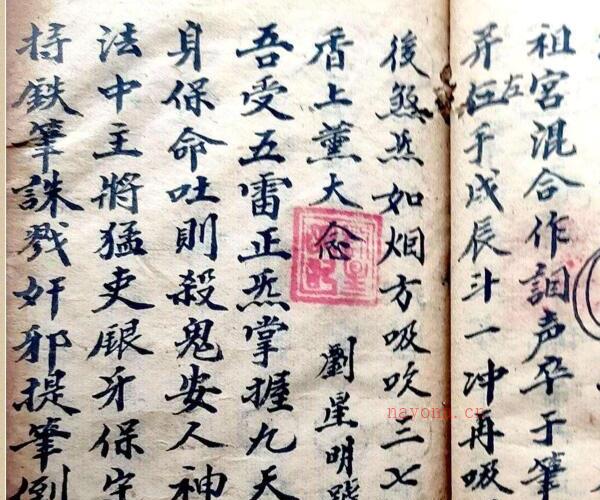 祖宮混合作声卒于筆
左于戊辰斗一冲再吸
後煞炁如烟方吸吹三七
香上薰大念 劉星明
吾受五雷正炁掌握九天
身保命吐則殺鬼安人神
法中主將猛吏銀牙保
持鉄筆誅戮奸邪提筆倒
nayona.cn